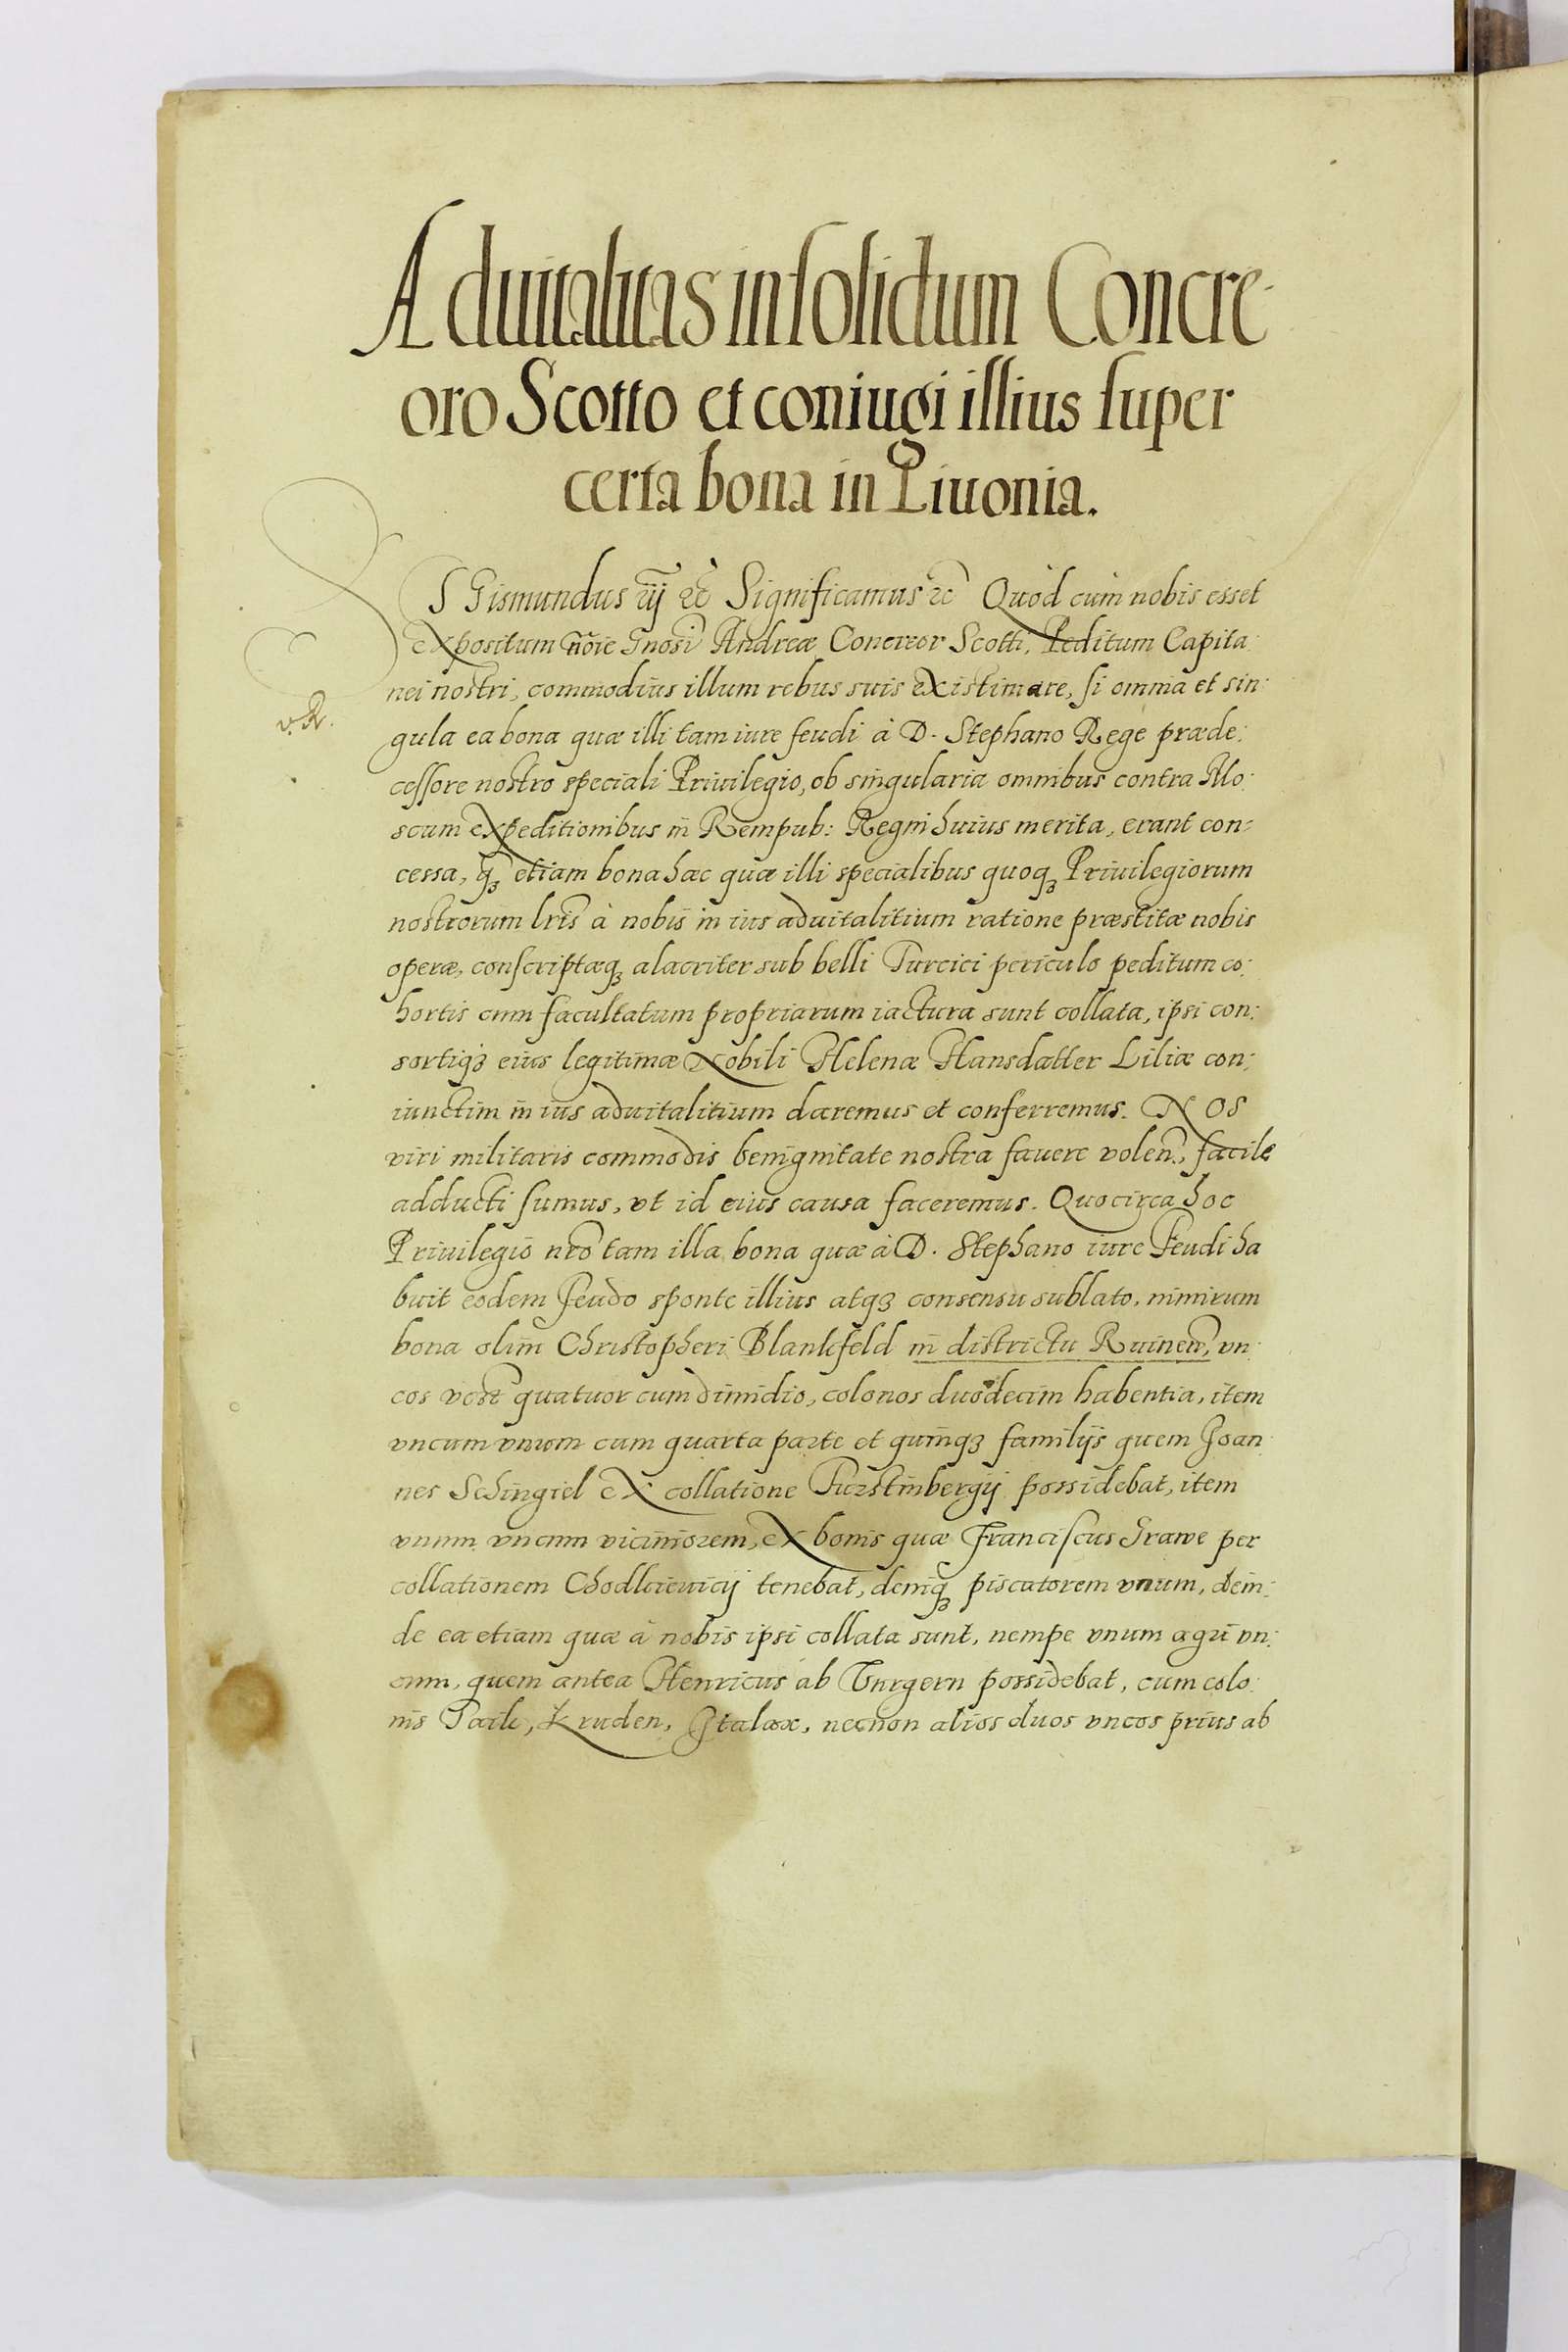 Aduitalitas in solidum Concre-
oro Scotto et coniugi illius super
certa bona in Liuonia.
SIGismundus iij etc Significamus etc Quòd cùm nobis esset
expositum noīe Gnosi Andreæ Concreor Scotti, Peditum Capita:
nei nostri, commodius illum rebus suis existimare, si omnia et sin:
v. R.
gula ea bona quæ illi tam iure feudi à D. Stephano Rege præde:
cessore nostro speciali Priuilegio, ob singularia omnibus contra Mo:
scum expeditionibus in Rempub: Regni huius merita, erant con:
cessa, q̃ȝ etiam bona hæc quæ illi specialibus quoqȝ Priuilegiorum
nostrorum lris à nobis in ius aduitalitium ratione præstitæ nobis
operæ, conscriptæqȝ alacriter sub belli Turcici periculo peditum co:
hortis cum facultatum propriarum iactura sunt collata, ipsi con:
sortiqȝ eius legitimæ Nobili Helenæ Hansdatter Liliæ con:
iunctim in ius aduitalitium daremus et conferremus. NOS
viri militaris commodis benignitate nostra fauere volen., facile
adducti sumus, vt id eius causa faceremus. Quocirca hoc
Priuilegio nro tam illa bona quæ à D. Stephano iure Feudi ha
buit eodem Feudo sponte illius atqȝ consensu sublato, nimirum
bona olim Christopheri Blankfeld in districtu Ruinen, vn:
cos quatuor cum dimidio, colonos duodecim habentia, item
vncum vnum cum quarta parte et quinqȝ familijs quem Joan
nes Schingiel ex collatione Furstinbergij possidebat, item
vnum vncum viciniorem, ex bonis quæ Franciscus Grawe per
collationem Chodkieuicij tenebat, deniqȝ piscatorem vnum, dein:
de ea etiam quæ à nobis ipsi collata sunt, nempe vnum agri vn:
cum, quem antea Henricus ab Vngern possidebat, cum colo:
nis Paik, Kruden, Italax, necnon alios duos vncos prius ab